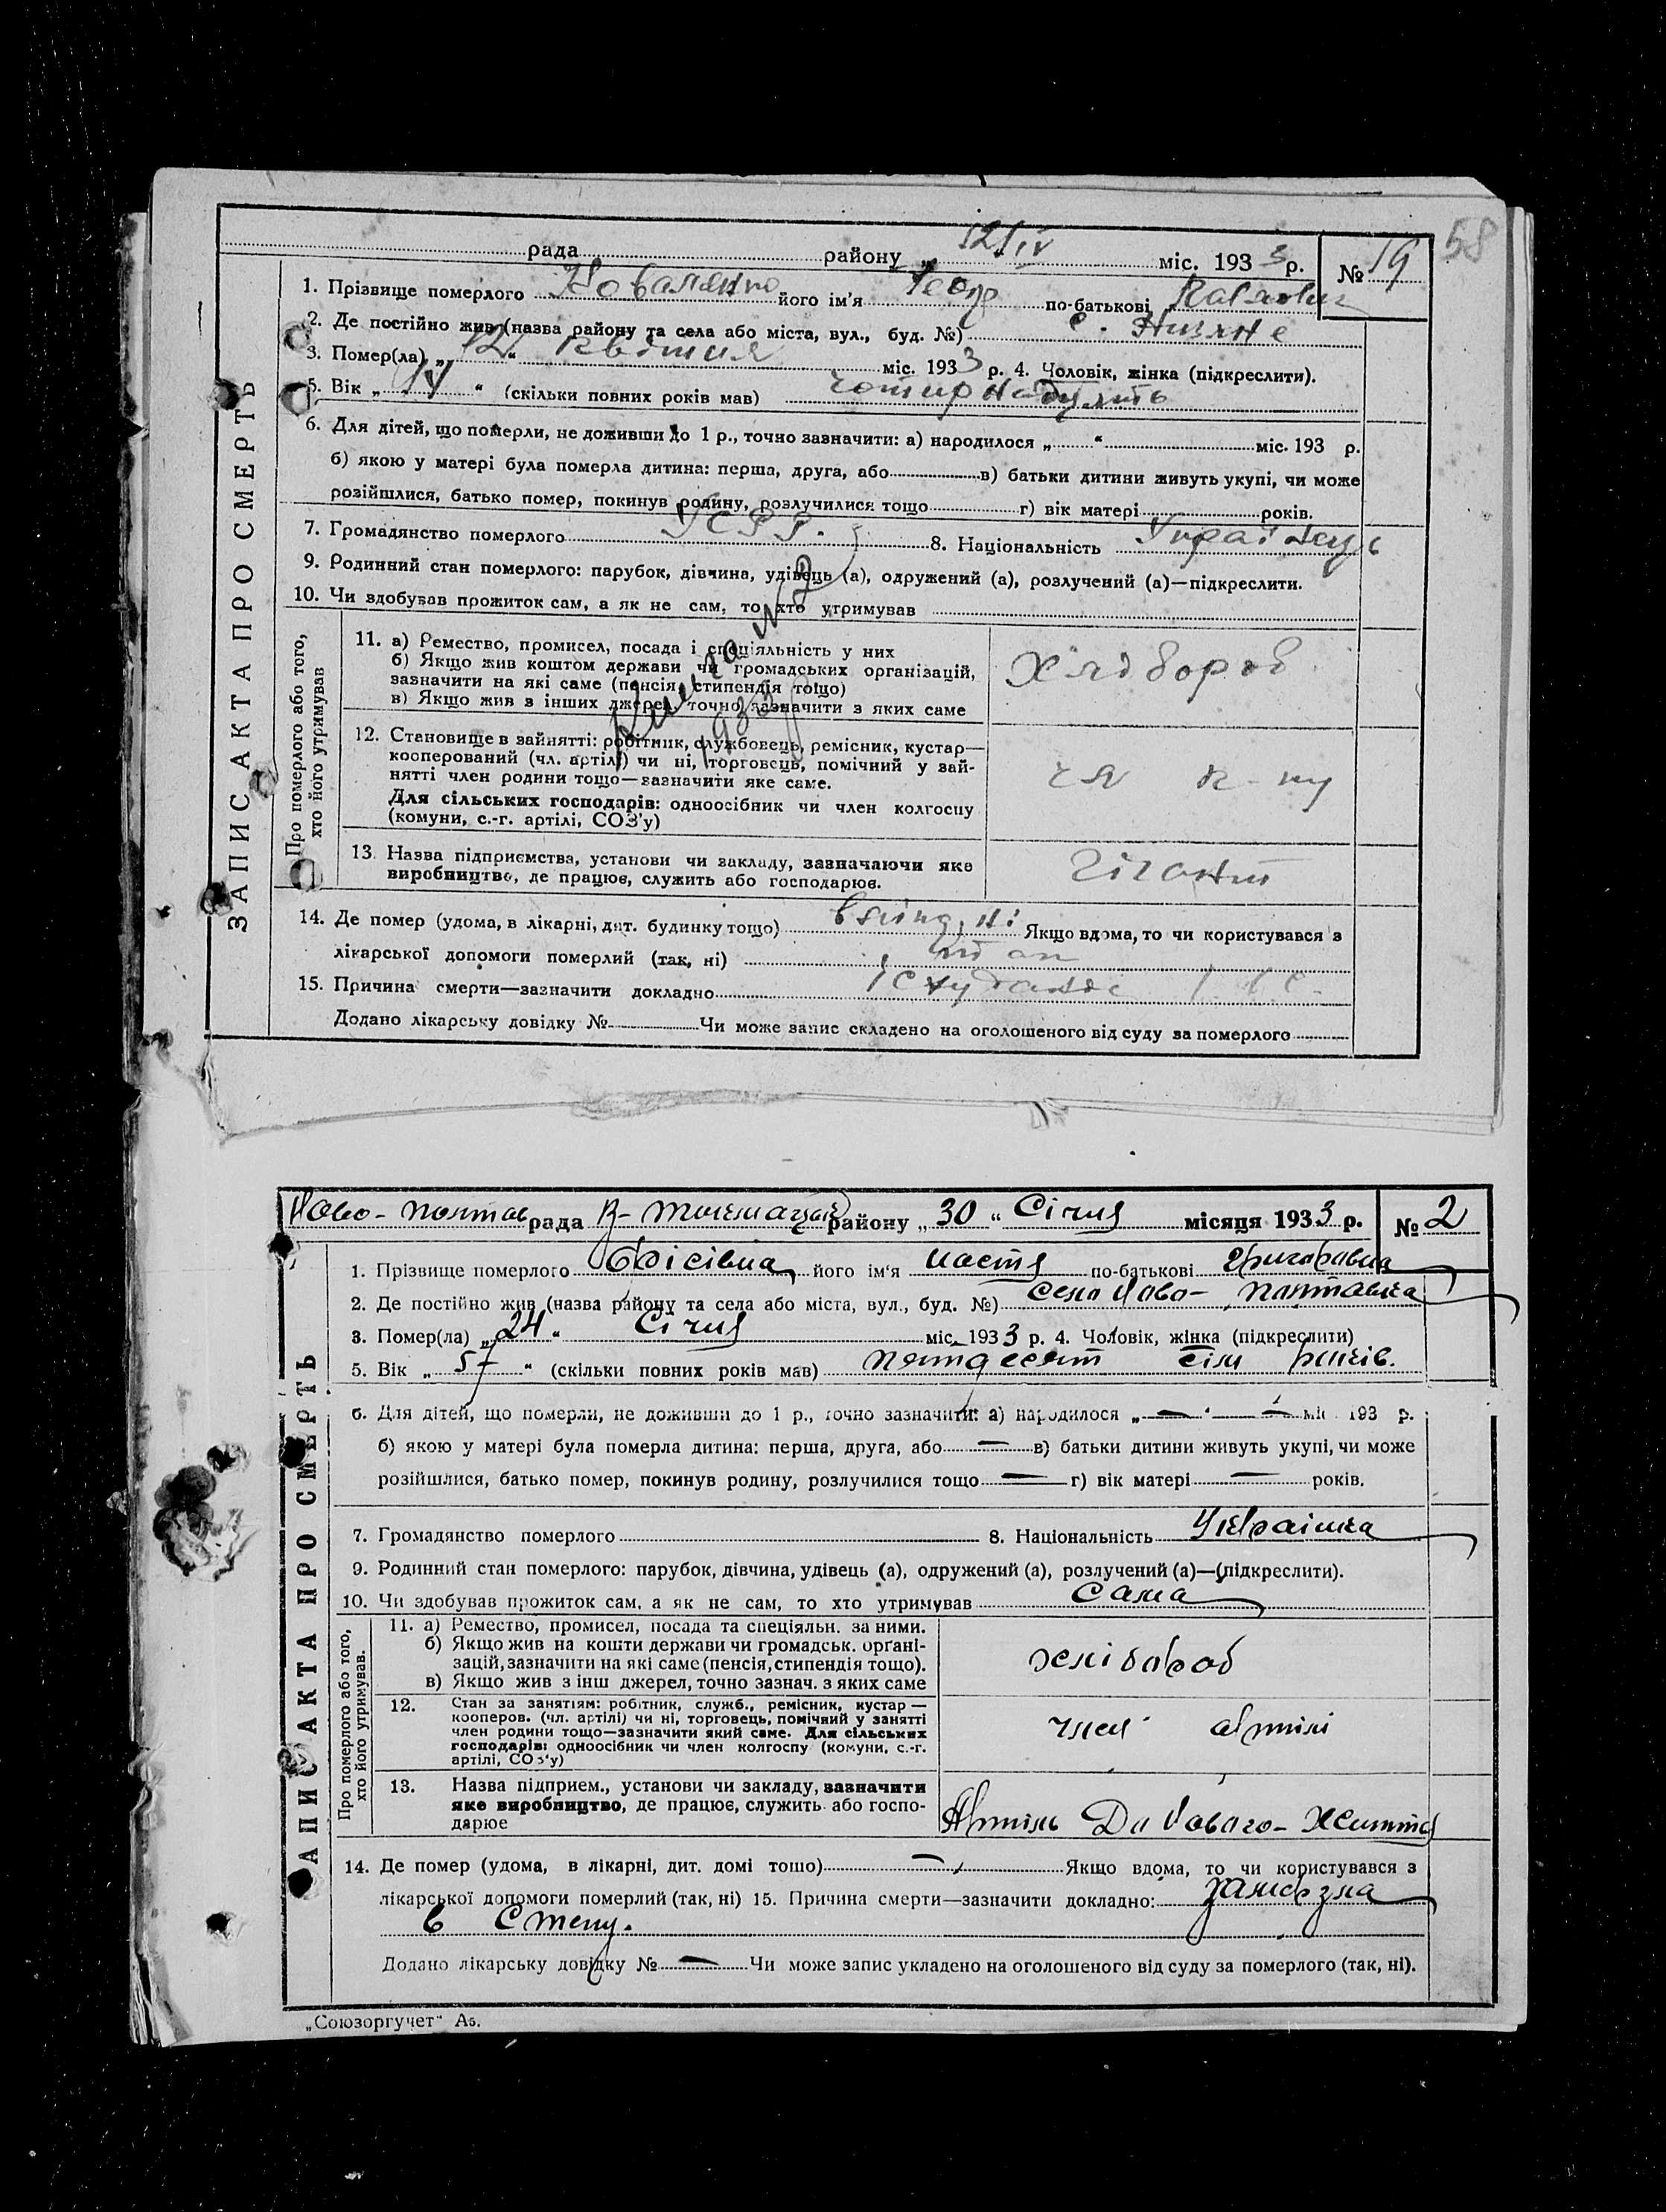 58
рада району „ 12/IV міс. 1933 р. № 19
1. Прізвище померлого Коваленко його ім'я по-батькові Павлович
2. Де постійно жив (назва району та села або міста, вул., буд. №) с.
3. Помер(ла) „ 12 “ квітня міс. 1933 р. 4. Чоловік, жінка (підкреслити).
5. Вік „ 14 “ (скільки повних років мав) чотирнадцять
6. Для дітей, що померли, не доживши до 1 р., точно зазначити: а) народилося „ “ міс. 193 р.
б) якою у матері була померла дитина: перша, друга, або в) батьки дитини живуть укупі, чи може
розійшлися, батько помер, покинув родину, розлучилися тощо г) вік матері років.
7. Громадянство померлого УСРР. 8. Національність Українець
9. Родинний стан померлого: парубок, дівчина, удівець (а), одружений (а), розлучений (а)—підкреслити.
10. Чи здобував прожиток сам, а як не сам, то хто утримував
Книга № 2
1933 р
ЗАПИС АКТА ПРО СМЕРТЬ
Про померлого або того,
хто його утримував
11. а) Ремество, промисел, посада і спеціяльність у них
б) Якщо жив коштом держави чи громадських організацій,
зазначити на які саме (пенсія, стипендія тощо)
в) Якщо жив з інших джерел, точно зазначити з яких саме
Хлібороб
12. Становище в зайнятті: робітник, службовець, ремісник, кустар—
кооперований (чл. артілі) чи ні, торговець, помічний у зай-
нятті член родини тощо—зазначити яке саме.
Для сільських господарів: одноосібник чи член колгоспу
(комуни, с.-г. артілі, СОЗ'у)
чл к-пу
13. Назва підприємства, установи чи закладу, зазначаючи яке
виробництво, де працює, служить або господарює.
Гігант
14. Де помер (удома, в лікарні, дит. будинку тощо) Якщо вдома, то чи користувався з
лікарської допомоги померлий (так, ні)
15. Причина смерти—зазначити докладно
Додано лікарську довідку № Чи може запис складено на оголошеного від суду за померлого
Ново-Полтав рада району „ 30 “ Січня місяця 1933 р. № 2
1. Прізвище померлого його ім'я Настя по-батькові Григоровна
2. Де постійно жив (назва району та села або міста, вул., буд. №) село Ново-Полтавка
3. Помер(ла) „ 24 “ Січня міс. 1933 р. 4. Чоловік, жінка (підкреслити)
5. Вік „ 57 “ (скільки повних років мав) пятдесят сім років.
6. Для дітей, що померли, не доживши до 1 р., точно зазначити: а) народилося „ — “ — міс. 193 р.
б) якою у матері була померла дитина: перша, друга, або — в) батьки дитини живуть укупі, чи може
розійшлися, батько помер, покинув родину, розлучилися тощо — г) вік матері — років.
7. Громадянство померлого 8. Національність Українка
9. Родинний стан померлого: парубок, дівчина, удівець (а), одружений (а), розлучений (а)—(підкреслити).
10. Чи здобував прожиток сам, а як не сам, то хто утримував сама
ЗАПИС АКТА ПРО СМЕРТЬ
Про померлого або того,
хто його утримував.
11. а) Ремество, промисел, посада та спеціяльн. за ними.
б) Якщо жив на кошти держави чи громадськ. органі-
зацій, зазначити на які саме (пенсія, стипендія тощо).
в) Якщо жив з інш джерел, точно зазнач. з яких саме
хлібороб
12. Стан за занятям: робітник, служб., ремісник, кустар —
кооперов. (чл. артілі) чи ні, торговець, помічний у занятті
член родини тощо—зазначити який саме. Для сільських
господарів: одноосібник чи член колгоспу (комуни, с.-г.
артілі, СОЗ'у)
член артілі
13. Назва підприєм., установи чи закладу, зазначити
яке виробництво, де працює, служить або госпо-
дарює
Артіль До Нового-Життя
14. Де помер (удома, в лікарні, дит. домі тощо) — Якщо вдома, то чи користувався з
лікарської допомоги померлий (так, ні) 15. Причина смерти—зазначити докладно: замерзла
в степу.
Додано лікарську довідку № — Чи може запис укладено на оголошеного від суду за померлого (так, ні).
„Союзоргучет“ Аз.